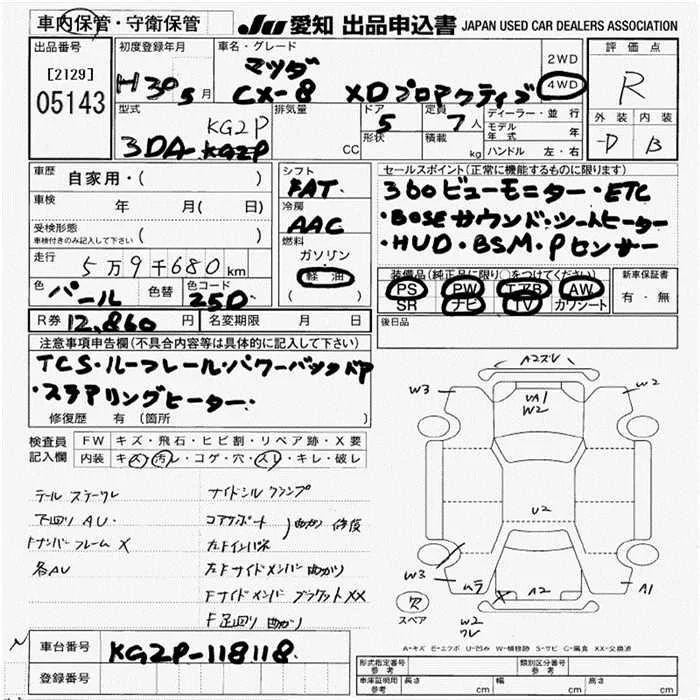 車内保管・守衛保管
JU 愛知 出品申込書 JAPAN USED CAR DEALERS ASSOCIATION
出品番号
[2129]
05143
初度登録年月
H30 5月
車名・グレード
マツダ
CX-8 XDプロアクティブ
2WD
4WD
評価点
R
外装 内装
D B
型式
KG2P
3DA-KG2P
排気量
CC
ドア
5
形状
定員
7人
積載
kg
ディーラー・並行
モデル年式 年
ハンドル 左・右
車歴
自家用・( )
車検 年 月( 日)
受検形態
車検付きのみ記入して下さい ( )
走行 5万9千680km
色 パール 色替 色コード 25D
R券 12,860円 名変期限 月 日
シフト
FAT
冷房
AAC
燃料
ガソリン
軽油
( )
セールスポイント(正常に機能するものに限ります)
360ビューモニター・ETC
・BOSEサウンド・シートヒーター
・HUD・BSM・Pセンサー
装備品(純正品に限り○をつけてください)
PS PW エアB AW
SR ナビ TV カワシート
新車保証書
有・無
後日品
注意事項申告欄(不具合内容等は具体的に記入して下さい)
TCS・ルーフレール・パワーバックドア
・ステアリングヒーター・
修復歴 有(箇所 )
検査員記入欄
FW キズ・飛石・ヒビ割・リペア跡・X要
内装 キズ・汚レ・コゲ・穴・スレ・キレ・破レ
テール ステーワレ
下回り AU・
Fナンバーフレーム X
各AU
サイドシル クランプ
コアサポート
左Fインパネ
曲がり 修復
左Fサイドメンバー 曲がり
Fサイドメンバー ブラケットXX
F足回り 曲がり
A2ズレ
W3
W2
UA1
W2
U2
W3
ムラ
X
A2
A1
W2
ワレ
欠
スペア
A=キズ E=エクボ U=凹み W=補修跡 S=サビ C=腐食 XX=交換済
車台番号 KG2P-118118
登録番号
形式指定番号
参考
類別区分番号
参考
車庫証明用
参考
長さ cm
幅 cm
高さ cm